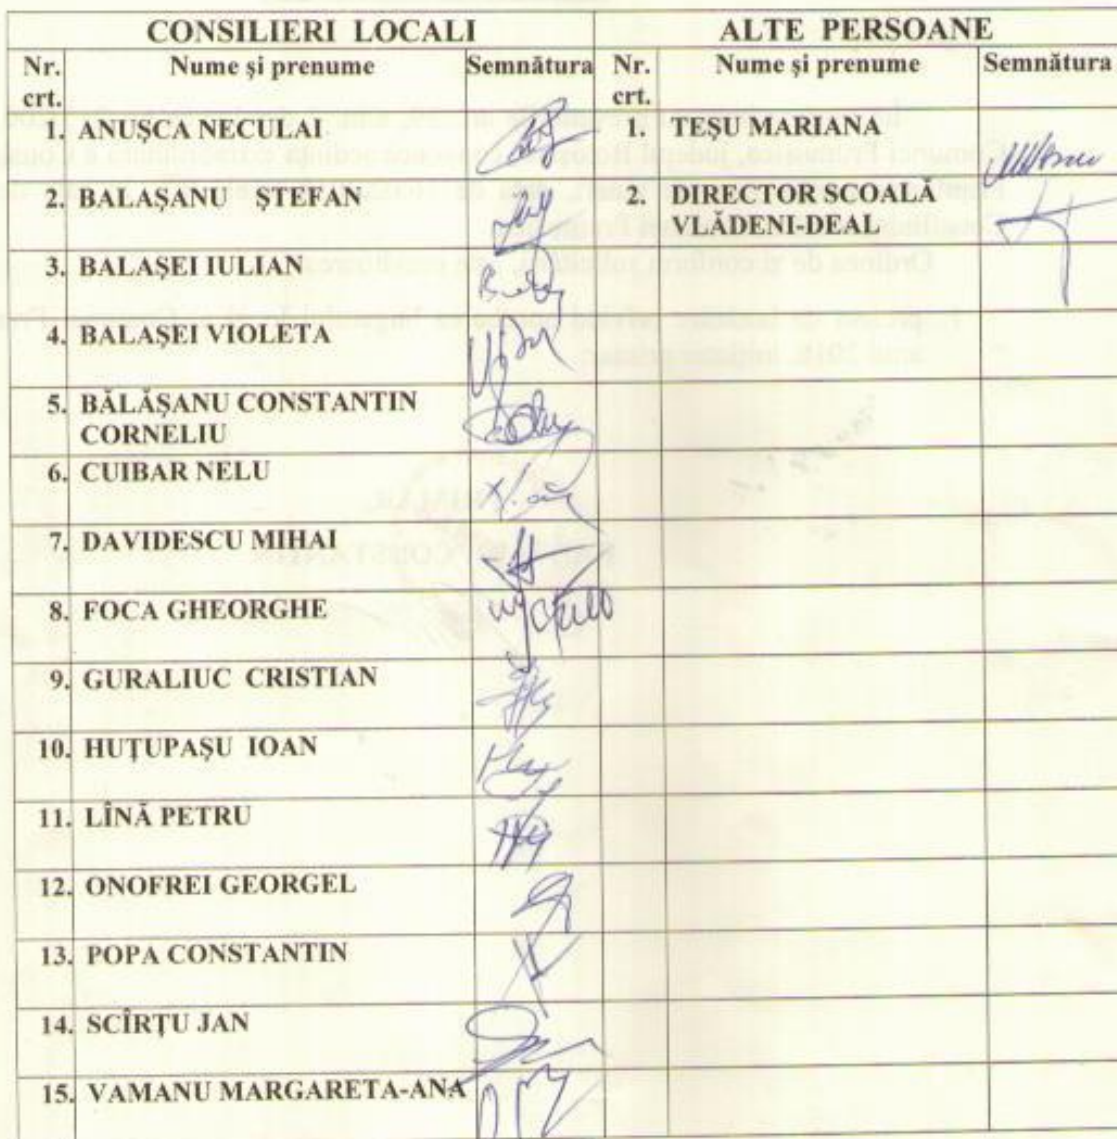 CONSILIERI LOCALI
ALTE PERSOANE
Nr. crt.
Nume şi prenume
Semnătura
Nr. crt.
Nume şi prenume
Semnătura
1. ANUŞCA NECULAI
1. TEŞU MARIANA
2. BALAŞANU ŞTEFAN
2. DIRECTOR SCOALĂ
VLĂDENI-DEAL
3. BALAŞEI IULIAN
4. BALAŞEI VIOLETA
5. BĂLĂŞANU CONSTANTIN
CORNELIU
6. CUIBAR NELU
7. DAVIDESCU MIHAI
8. FOCA GHEORGHE
9. GURALIUC CRISTIAN
10. HUŢUPAŞU IOAN
11. LÎNĂ PETRU
12. ONOFREI GEORGEL
13. POPA CONSTANTIN
14. SCÎRŢU JAN
15. VAMANU MARGARETA-ANA